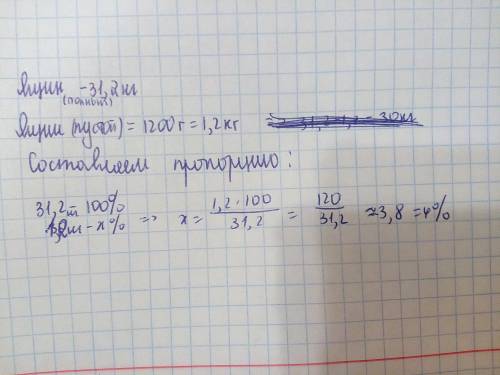 Ящик -31,2кг
(полный)
Ящик (пустой) = 1200г = 1,2кг
Составляем пропорцию:
31,2 - 100%
1,2 - x% => x = 1,2·100/31,2 = 120/31,2 ≈3,8 =4%